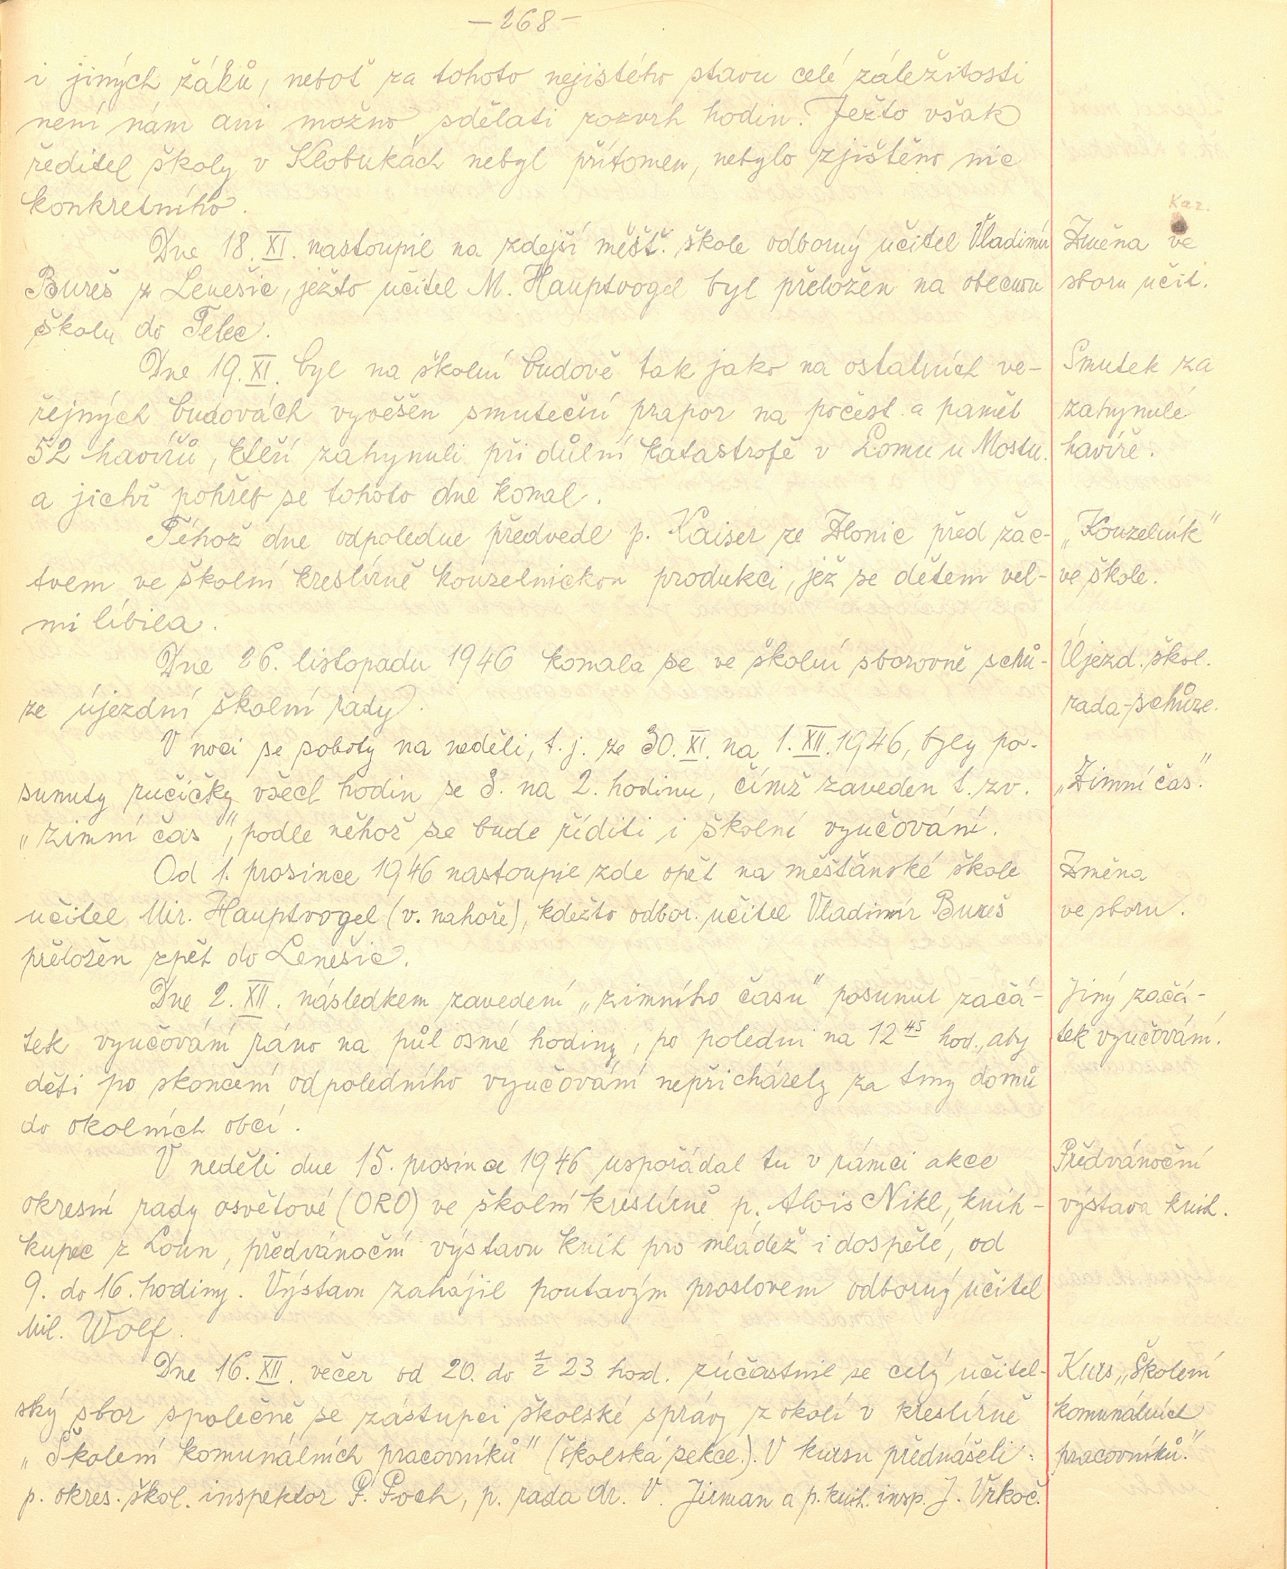 – 268 –
i jiných žáků, neboť za tohoto nejistého stavu celé záležitosti
není nám ani možno sdělati rozvrh hodin. Ježto však
ředitel školy v Klobukách nebyl přítomen, nebylo zjištěno nic
konkretního.
Kaz.
Dne 18. XI. nastoupil na zdejší měšť. škole odborný učitel Vladimír
Změna ve
Bureš z Lenešic, ježto učitel M. Hauptvogel byl přeložen na obecnou
sboru učit.
školu do Telec.
Dne 19. XI. byl na školní budově tak jako na ostatních ve-
Smutek za
řejných budovách vyvěšen smuteční prapor na počest a paměť
zahynulé
52 havířů, kteří zahynuli při důlní katastrofě v Lomu u Mostu.
havíře.
a jichž pohřeb se tohoto dne konal.
Téhož dne odpoledne předvedl p. Kaiser ze Zlonic před žac-
„Kouzelník"
tvem ve školní kreslírně kouzelnickou produkci, jež se dětem vel-
ve škole.
mi líbila.
Dne 26. listopadu 1946 konala se ve školní sborovně schů-
Újezd. škol.
ze újezdní školní rady.
rada-schůze.
V noci se soboty na neděli, t. j. ze 30. XI. na 1. XII. 1946, byly po-
sunuty ručičky všech hodin se 3. na 2. hodinu, čímž zaveden t. zv.
„Zimní čas."
„zimní čas", podle něhož se bude říditi i školní vyučování.
Od 1. prosince 1946 nastoupil zde opět na měšťanské škole
Změna
učitel Mir. Hauptvogel (v. nahoře), kdežto odbor. učitel Vladimír Bureš
ve sboru.
přeložen zpět do Lenešic.
Dne 2. XII. následkem zavedení „zimního času" posunut začá-
Jiný začá-
tek vyučování ráno na půl osmé hodiny, po poledni na 12 45 hod., aby
tek vyučování.
děti po skončení odpoledního vyučování nepřicházely za tmy domů
do okolních obcí.
V neděli dne 15. prosince 1946 uspořádal tu v rámci akce
Předvánoční
okresní rady osvětové (ORO) ve školní kreslírně p. Alois Nikl, knih-
výstava knih.
kupec z Loun, předvánoční výstavu knih pro mládež i dospělé, od
9. do 16. hodiny. Výstavu zahájil poutavým proslovem odborný učitel
Mil. Wolf.
Dne 16. XII. večer od 20. do ½ 23 hod. zúčastnil se celý učitel-
Kurs „Školení
ský sbor společně se zástupci školské správy z okolí v kreslírně
komunálních
„Školení komunálních pracovníků" (školská sekce). V kursu přednášeli:
pracovníků."
p. okres. škol. inspektor F. Poch, p. rada dr. V. Jirman a p. knih. insp. J. Vrkoč.